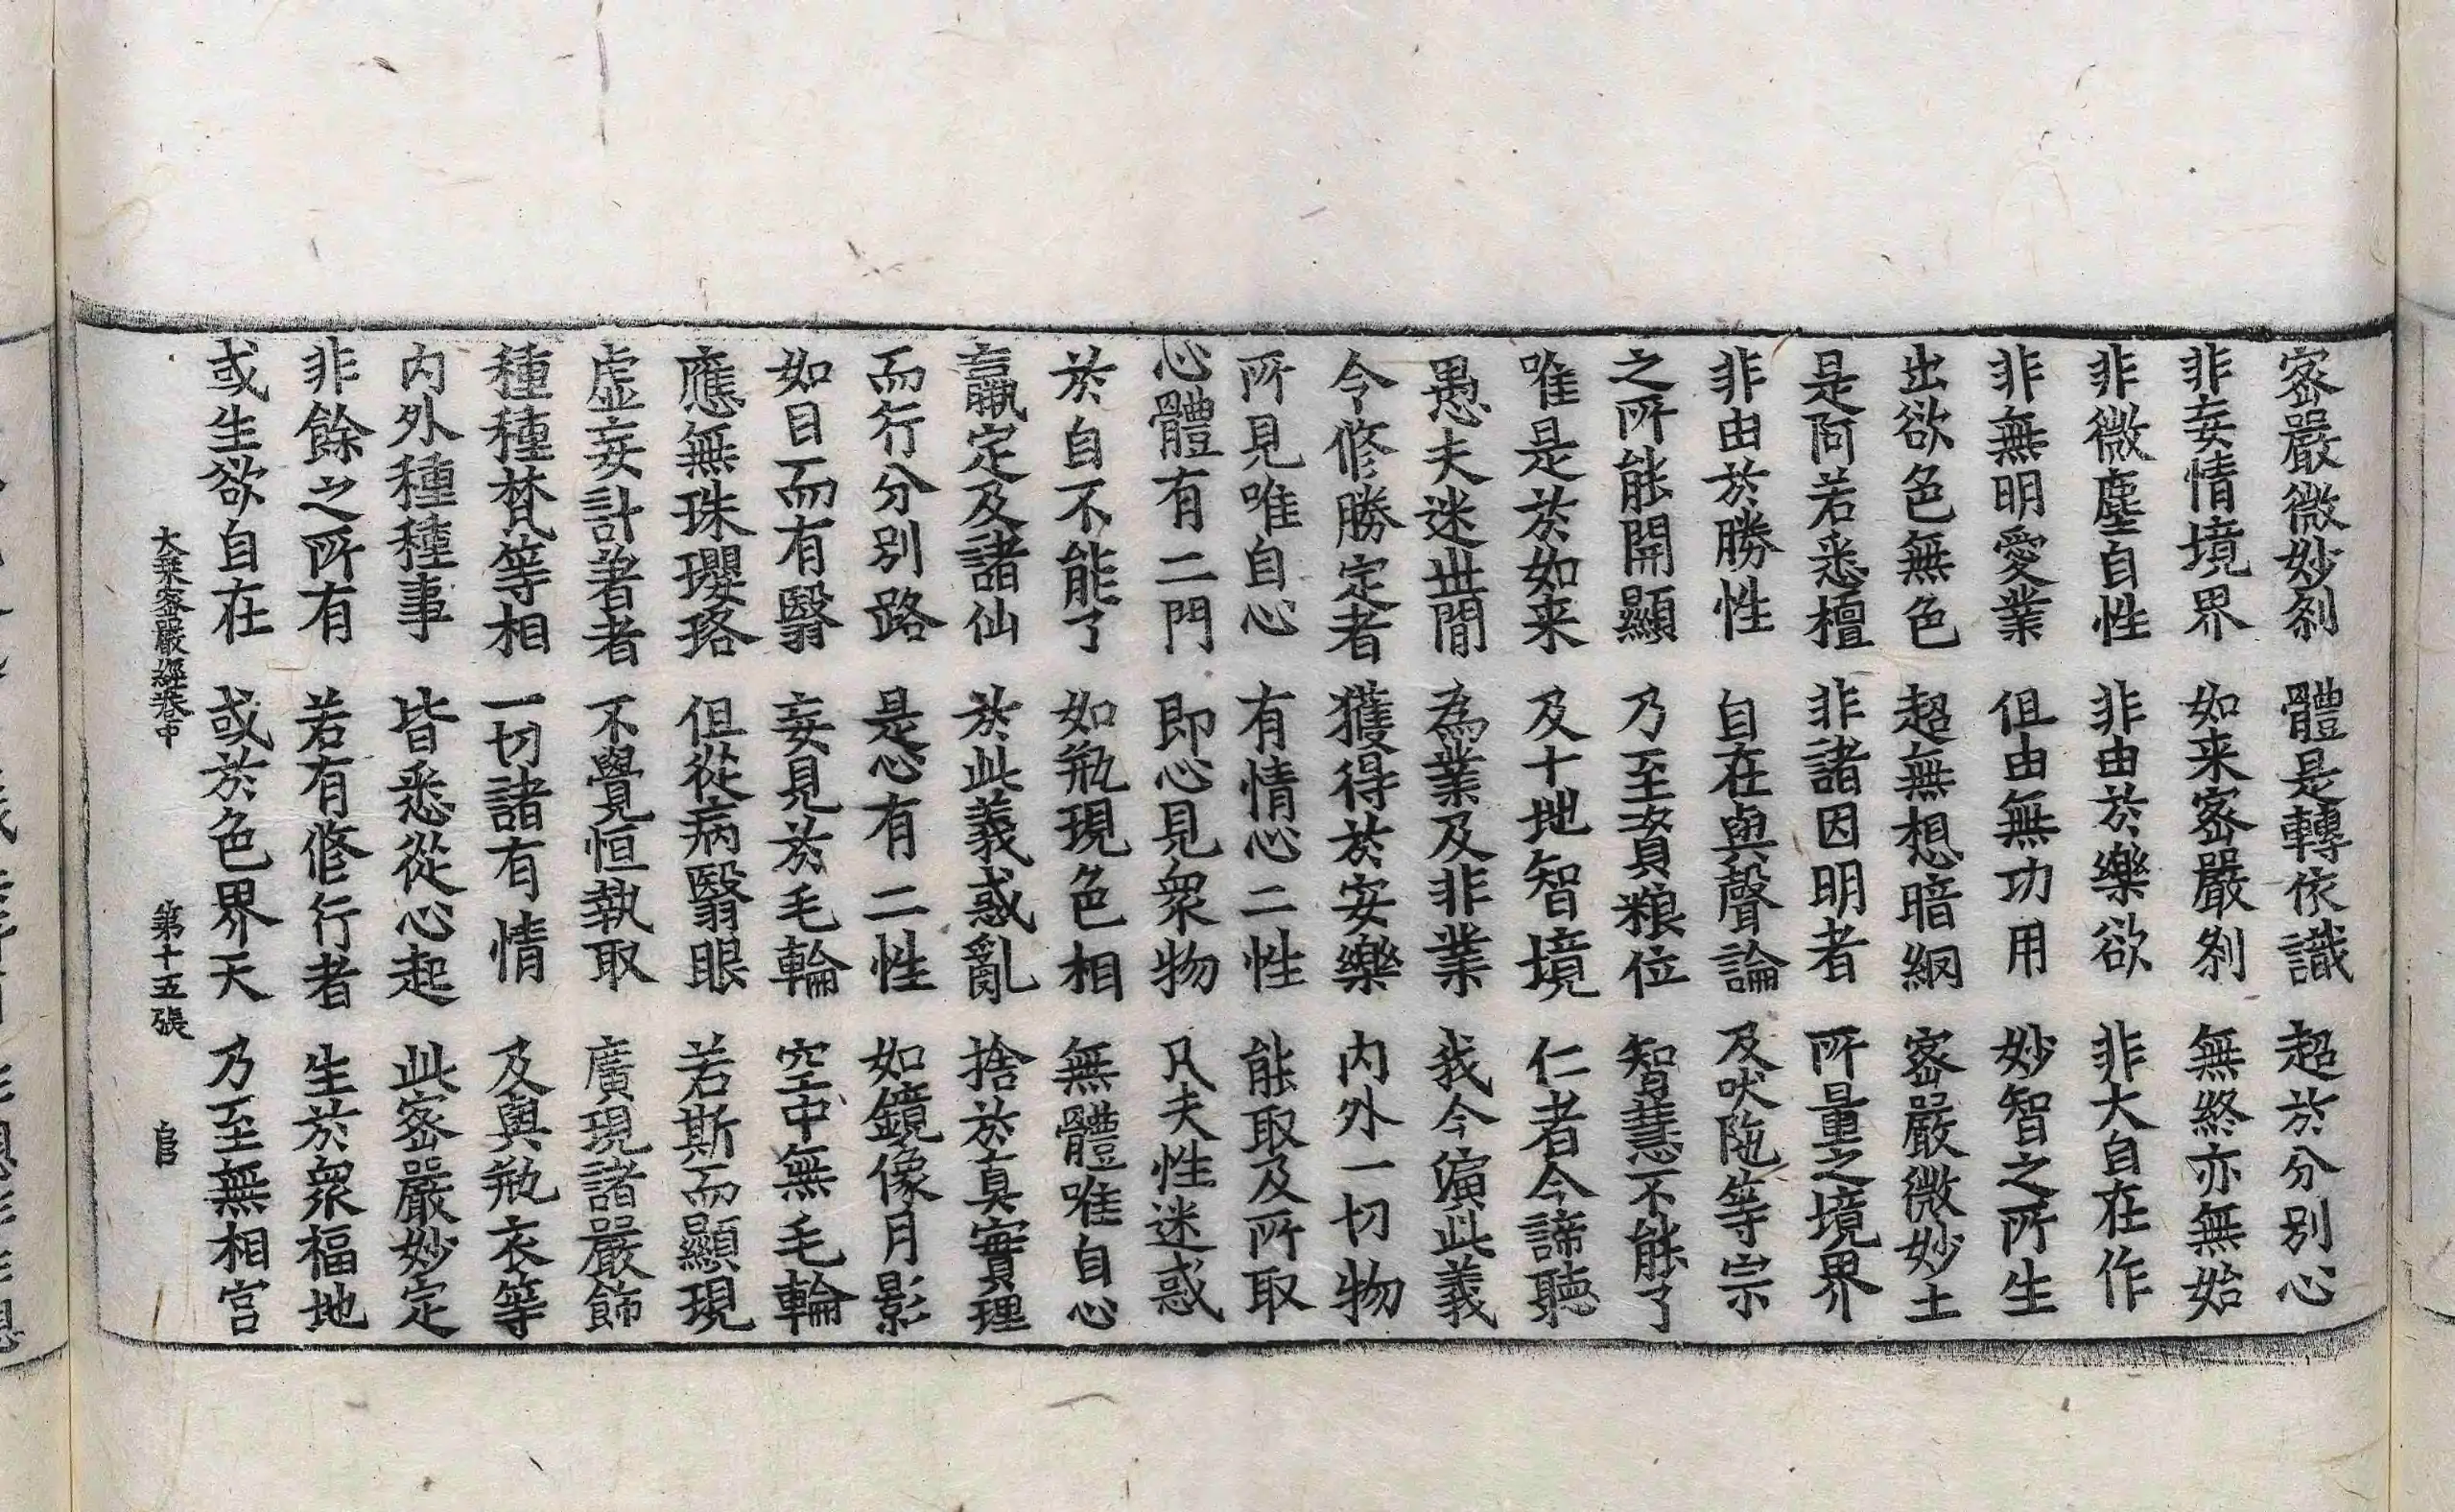 密嚴微妙刹　體是轉依識　超於分別心
非妄情境界　如来密嚴刹　無終亦無始
非微塵自性　非由於樂欲　非大自在作
非無明愛業　但由無功用　妙智之所生
出欲色無色　超無想暗網　密嚴微妙土
是阿若悉檀　非諸因明者　所量之境界
非由於勝性　自在與聲論　及吠陁等宗
之所能開顯　乃至資粮位　智慧不能了
唯是於如来　及十地智境　仁者今諦聽
愚夫迷世間　為業及非業　我今演此義
令修勝定者　獲得於安樂　内外一切物
所見唯自心　有情心二性　能取及所取
心體有二門　即心見衆物　凡夫性迷惑
於自不能了　如瓶現色相　無體唯自心
羸定及諸仙　於此義惑亂　捨於真實理
而行分別路　是心有二性　如鏡像月影
如目而有翳　妄見於毛輪　空中無毛輪
應無珠瓔珞　但從病翳眼　若斯而顯現
虚妄計著者　不覺恒執取　廣現諸嚴飾
種種梵等相　一切諸有情　及與瓶衣等
内外種種事　皆悉從心起　此密嚴妙定
非餘之所有　若有修行者　生於衆福地
或生欲自在　或於色界天　乃至無相宫
大乗密嚴經卷中　第十五張　官